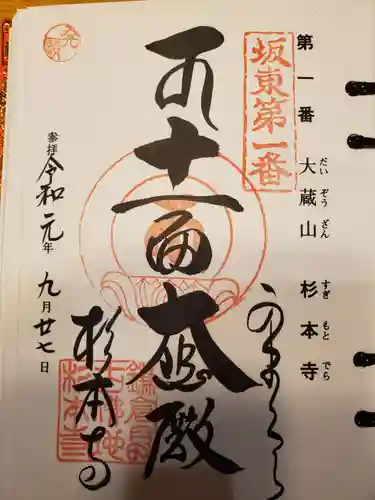 第一番 大蔵山 杉本寺
だい ぞう ざん すぎ もと でら
坂東第一番
十一面大悲殿
発願
参拝 令和元年 九月廿七日
杉本寺